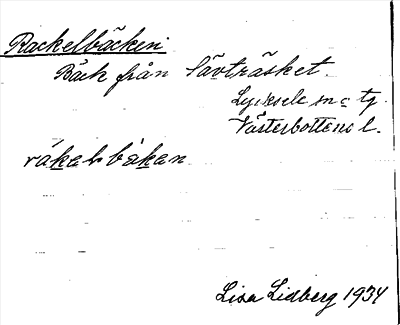 Rackelbäcken
Bäck från Lävträsket.
Lycksele sn o tg
Västerbottens l.
räkelbäkan
Lisa Lidberg 1934